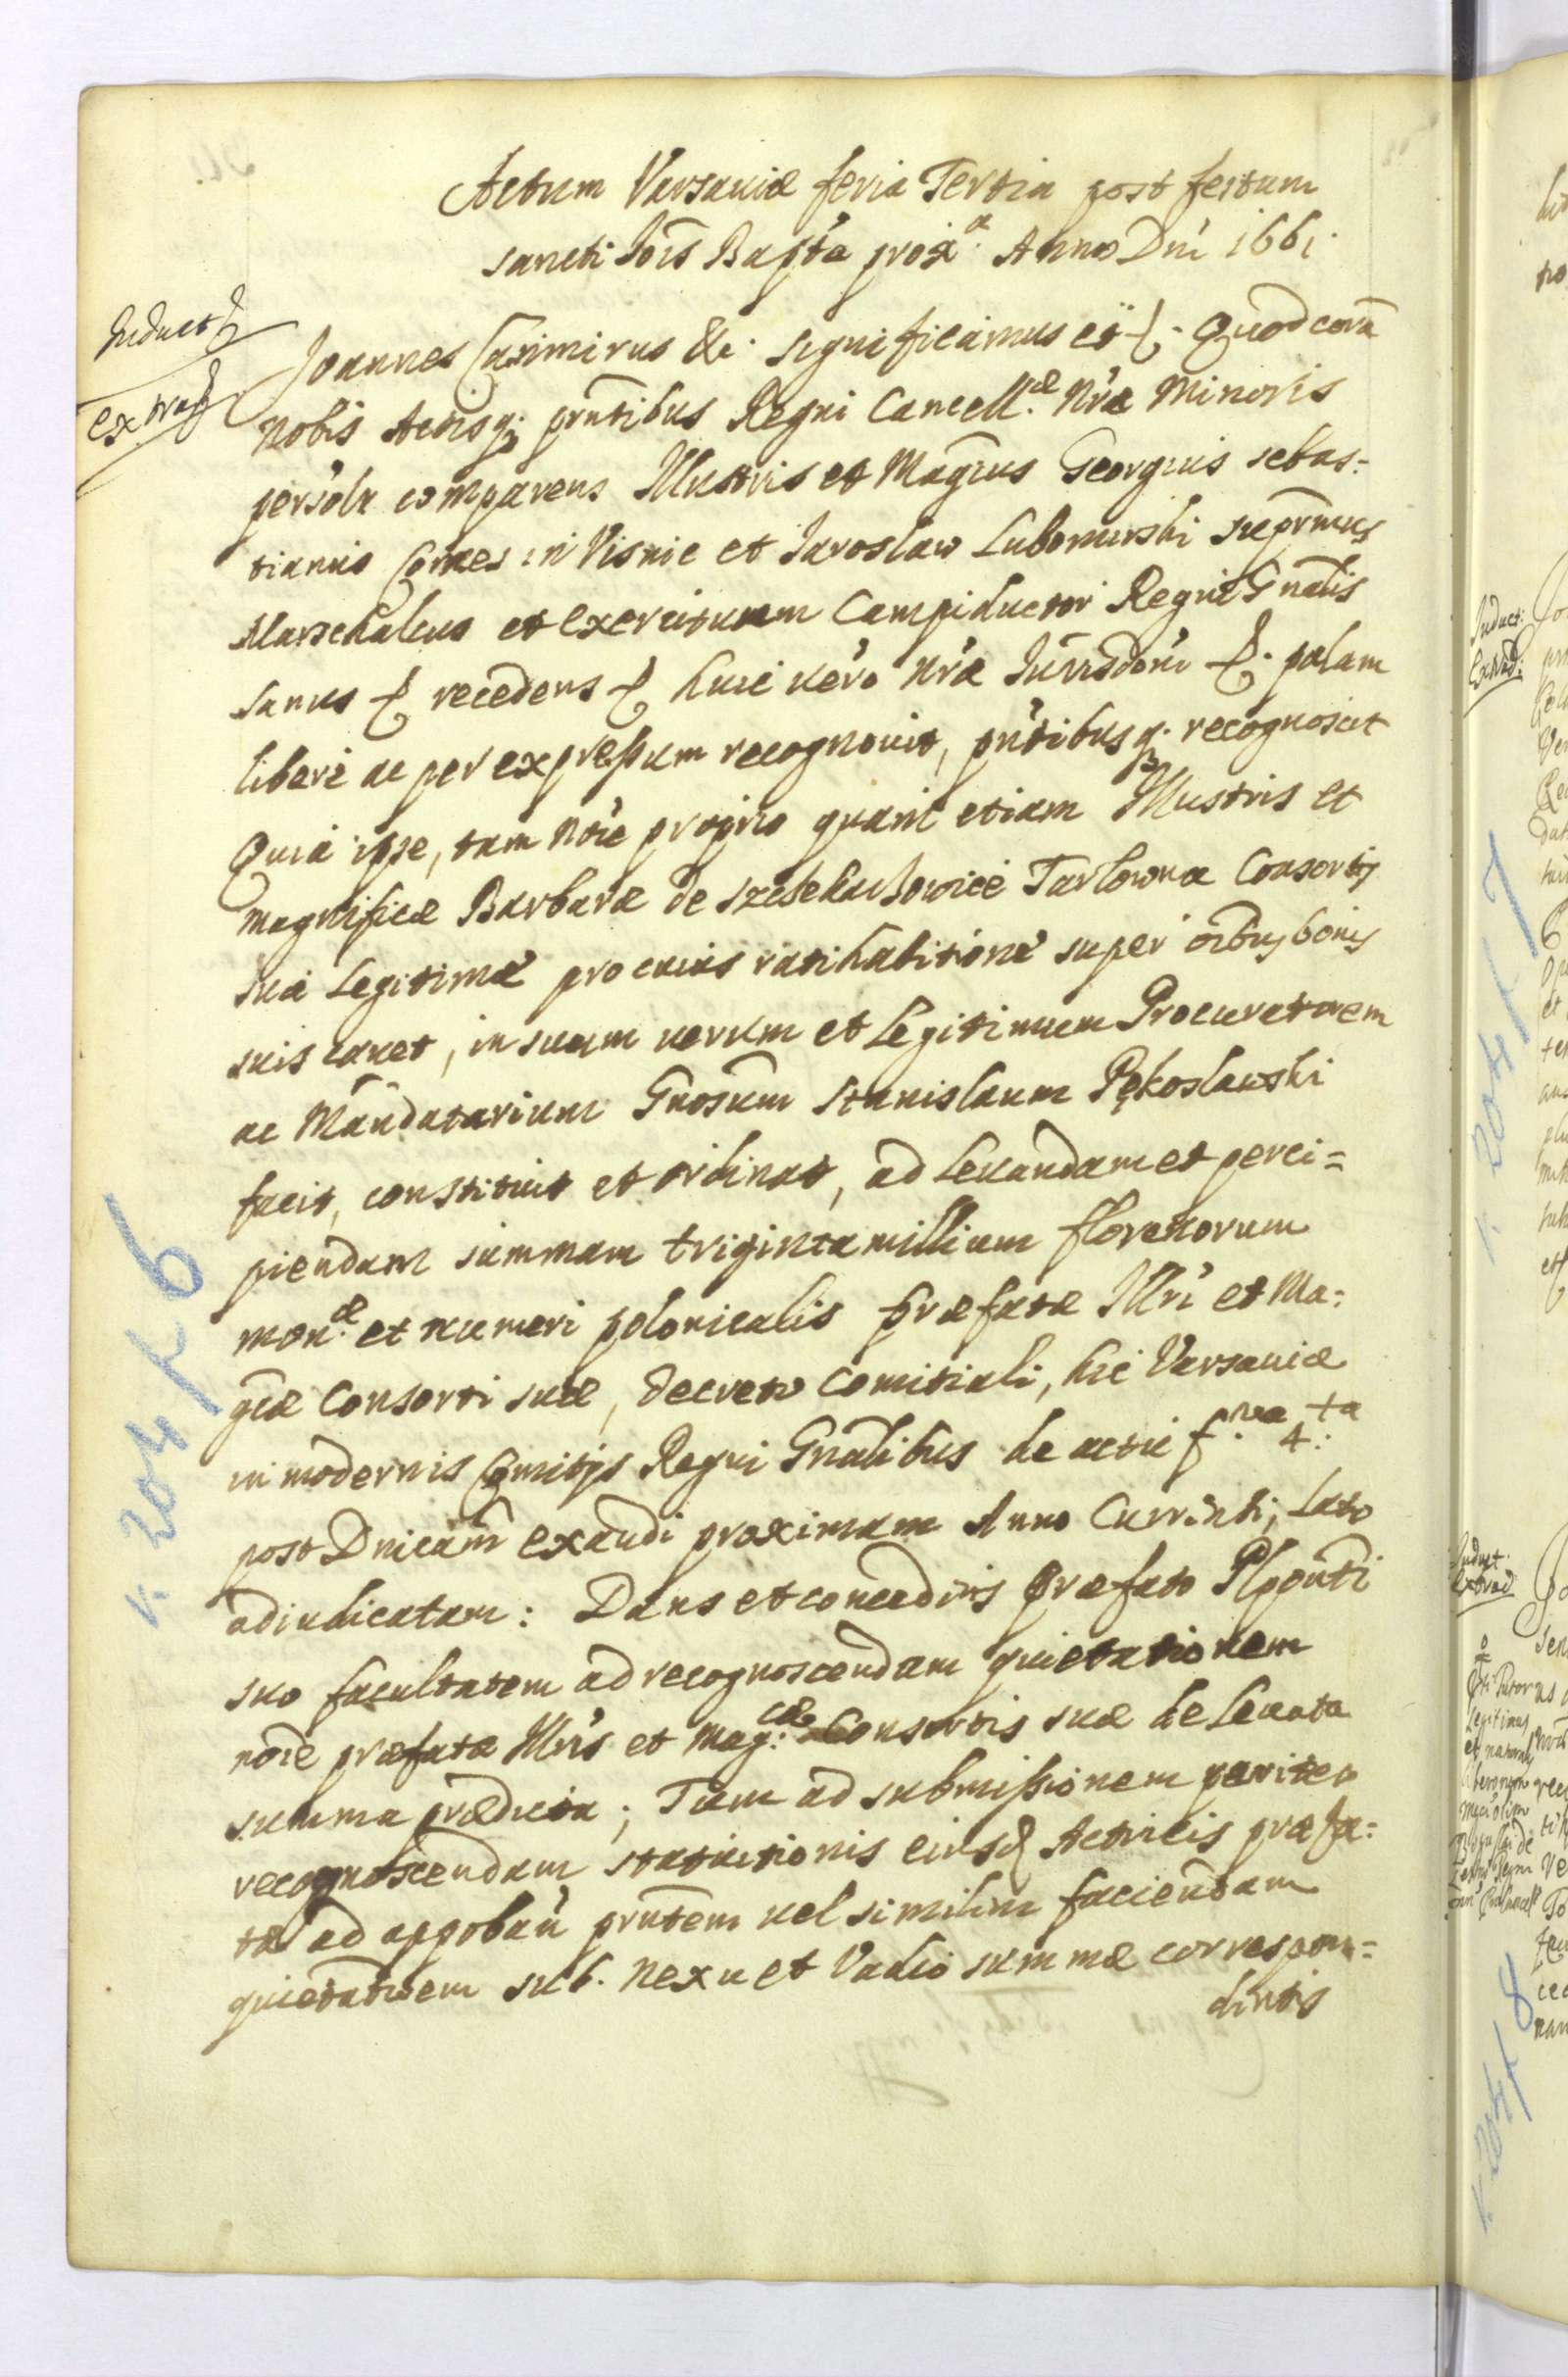 Actum Varsauiæ feria Tertia post festum
sancti Jois Bapta proxa Anno Dni 1661.
Induct
extrad
Joannes Casimirus &c. significamus &. Quod cora
nobis Actisq; pntibus Regni Cancell.æ Nræ Minoris
persolr comparens Illustris et Magcus Georgius sebas:
tianus Comes in Visnic et Jaroslaw Lubomirski supremus
Marschalcus et exercituum Campiductor Regni Gnalis
sanus & recedens & huic vero nræ Jurisdoni &. palam
libere ac per expressum recognouit, pntibusq; recognoscit
Quia ipse, tam noie proprio quam etiam Illustris et
magnificæ Barbaræ de Tarlowna Consortis
suæ Legitimæ pro cuius ratihabitione super oibus bonis
suis cauet, in suum verum et Legitimum Procuratorem
ac Mandatarium Gnosum Stanislaum Pękoslawski
facit, constituit et ordinat, ad Leuandam et perci=
piendam summam triginta millium florenorum
mon.æ et numeri polonicalis præfatæ Illri et Ma:
gcæ Consorti suæ, Decreto Comitiali, hic Varsauiæ
in modernis Comitijs Regni Gnalibus de actu f.ria 4.ta
post Dnicam Exaudi proximam Anno Currenti, Lato
adiudicatam: Dans et concedens præfato Plponti
suo facultatem ad recognoscendam quietationem
noie præfatæ Illris et Mag:cæ Consortis suæ de Leuata
summa prædicta; Tum ad submissionem pariter
recognoscendam statuitionis eiusd Actricis præfa:
tæ ad appoban pntem uel similem faciendam
quietatioem sub. nexu et Vadio summæ correspon=
dentis
k. 204 K 6
Induct:
Extrad:
k. 204 K 7
Induct.
Extrad
k. 204 K 8